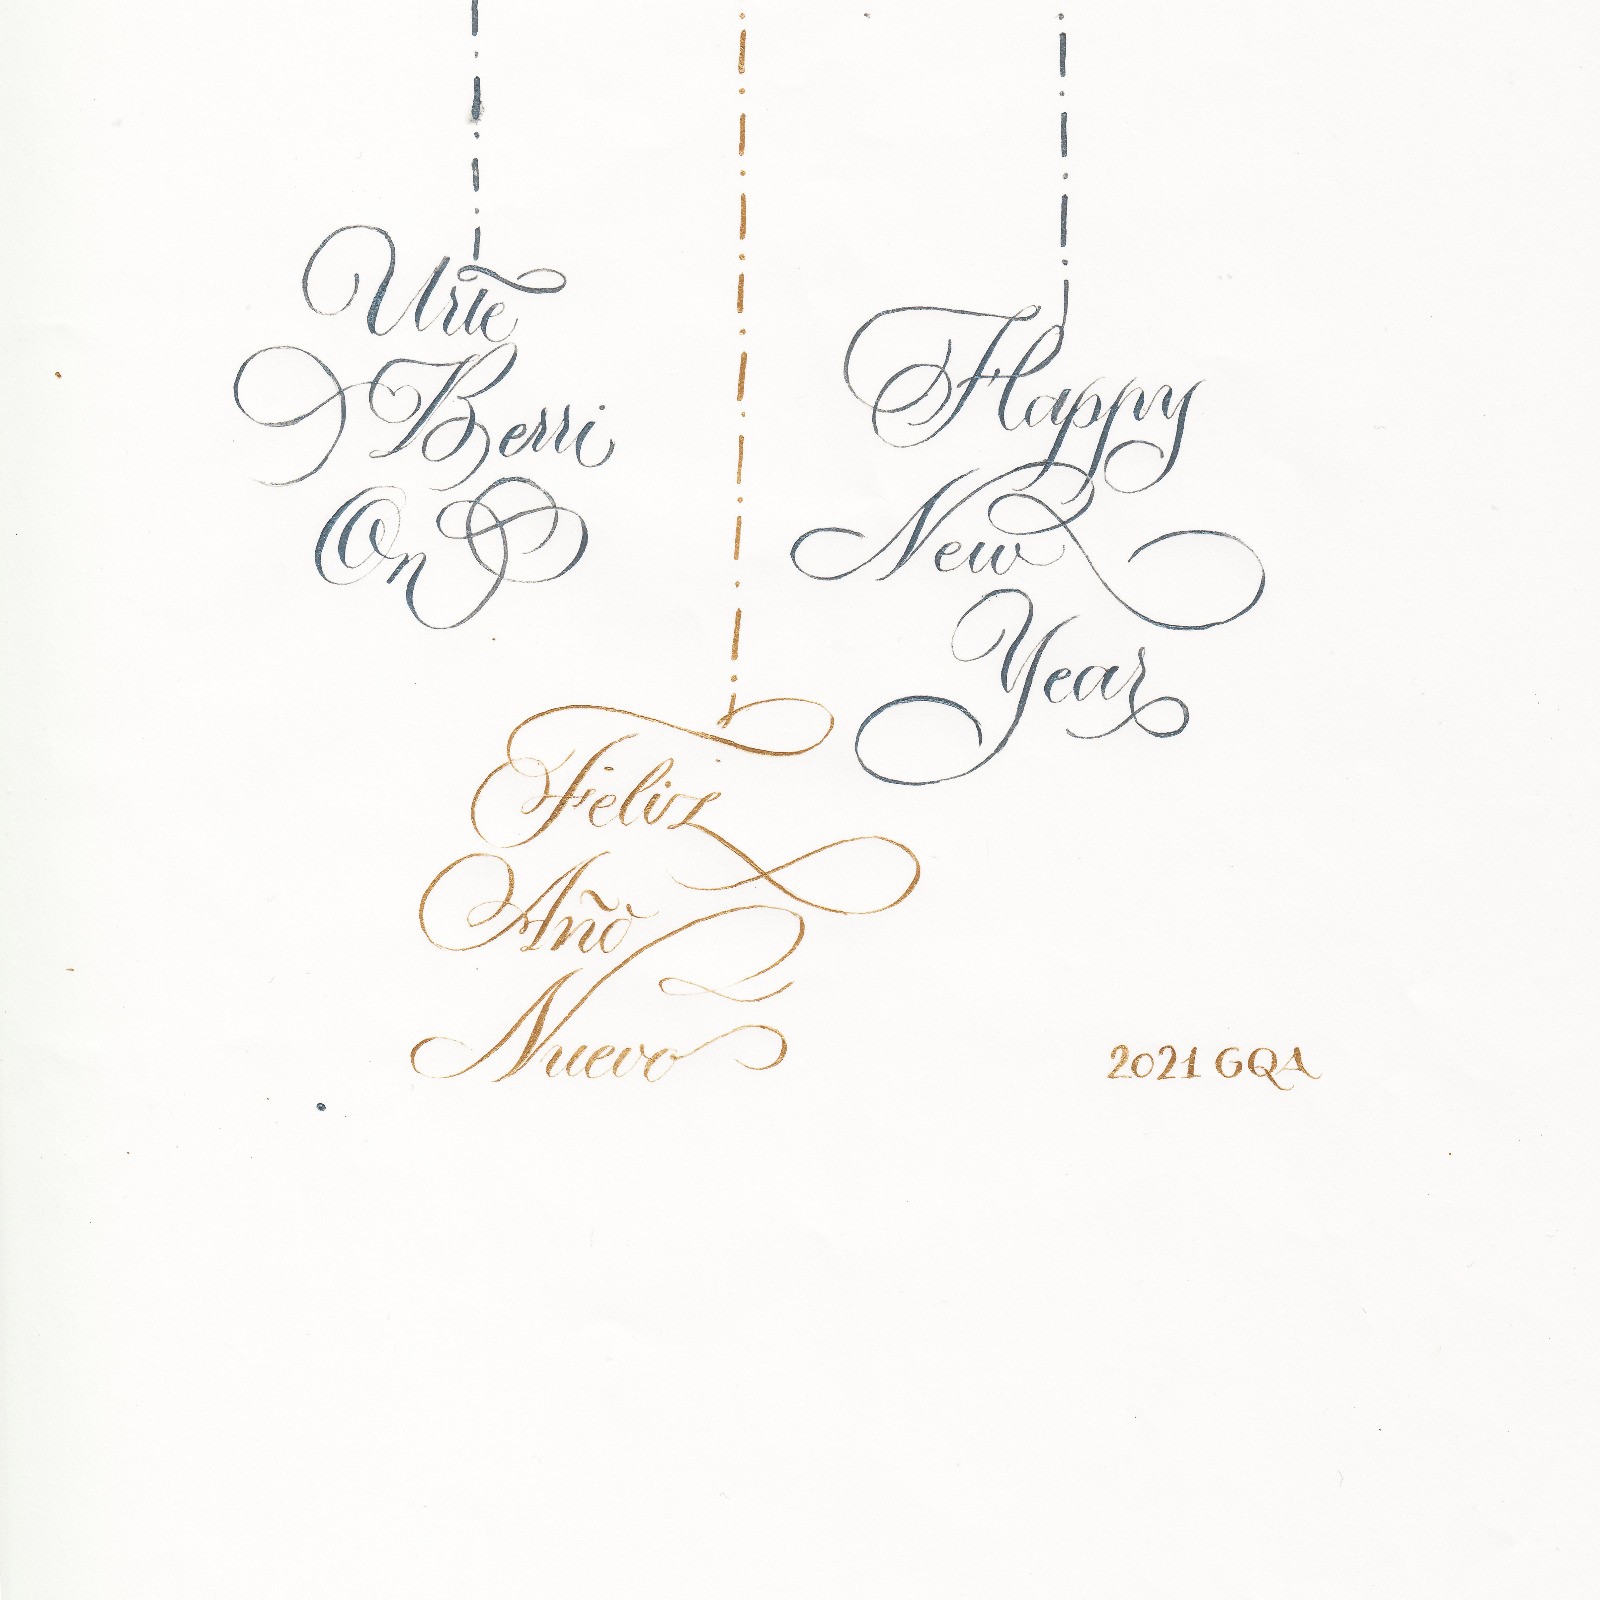 Urte
Berri
On
Happy
New
Year
Feliz
Año
Nuevo
2021 GQA